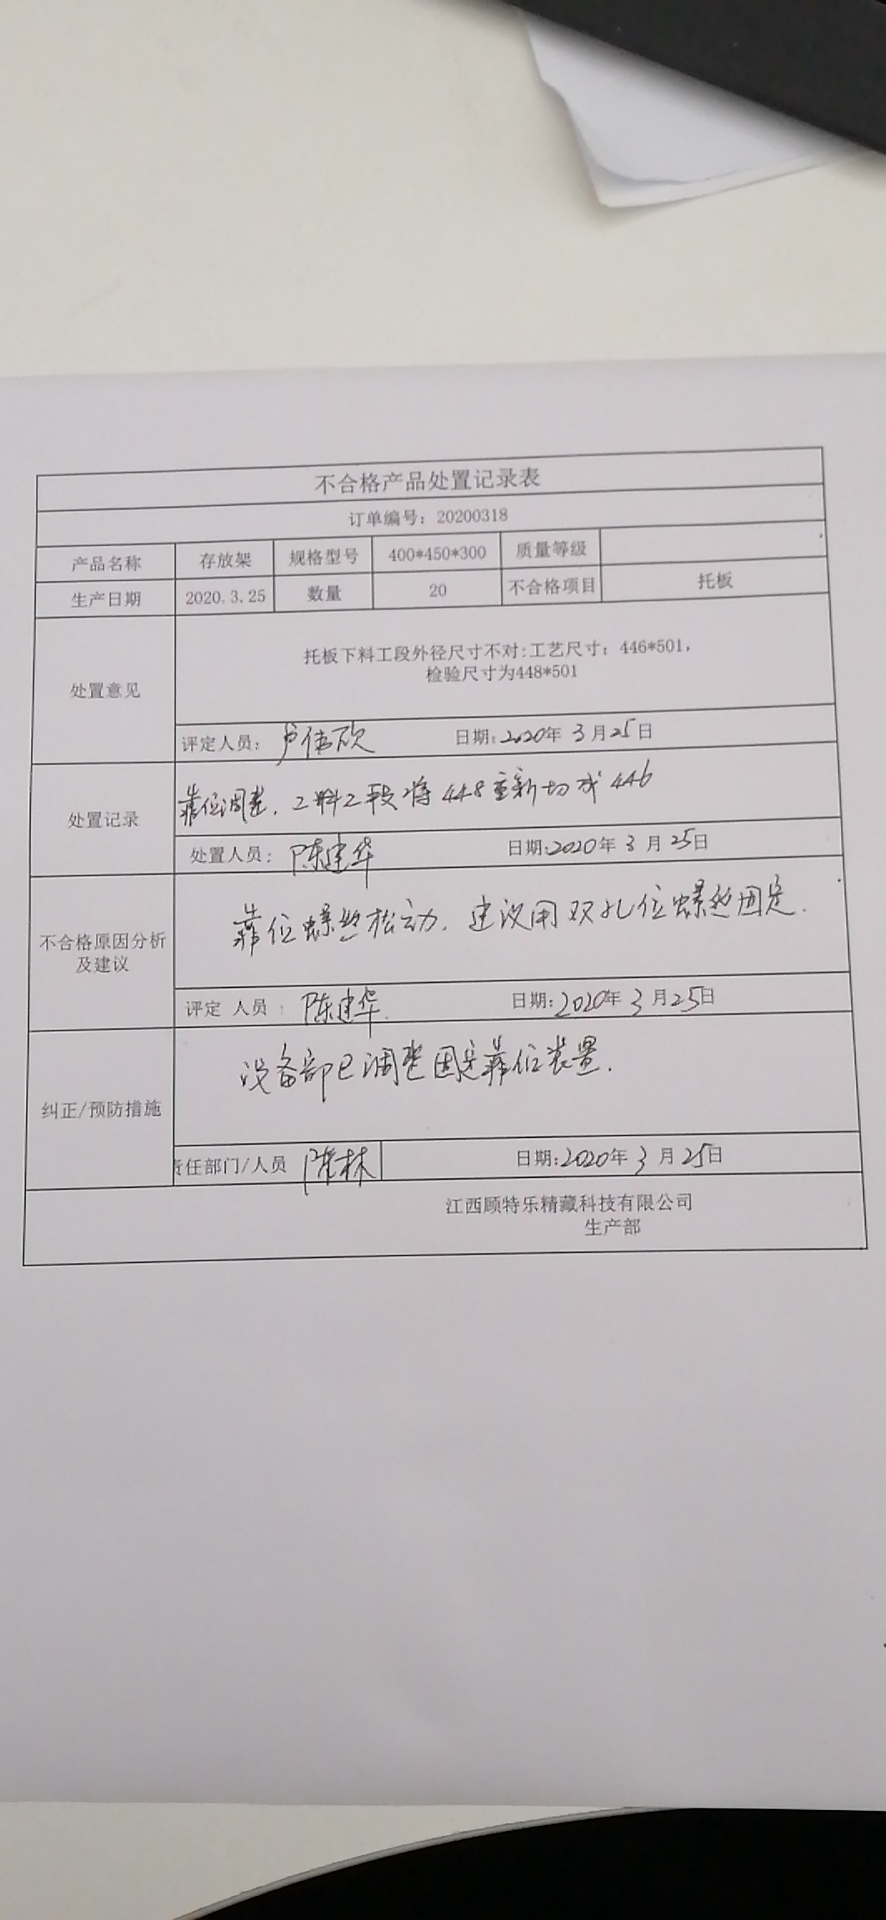 不合格产品处置记录表
订单编号：20200318
产品名称 存放架 规格型号 400*450*300 质量等级
生产日期 2020.3.25 数量 20 不合格项目 托板
处置意见
托板下料工段外径尺寸不对:工艺尺寸：446*501，
检验尺寸为448*501
评定人员： 日期:2020年3月25日
处置记录
靠位调整，工段将448重新切成446
处置人员：陈建华 日期:2020年3月25日
不合格原因分析
及建议
靠位螺丝松动，建议用双孔位螺丝固定.
评定 人员 ：陈建华. 日期:2020年3月25日
纠正/预防措施
设备部已调整固定靠位装置.
责任部门/人员 日期:2020年3月25日
江西顾特乐精藏科技有限公司
生产部